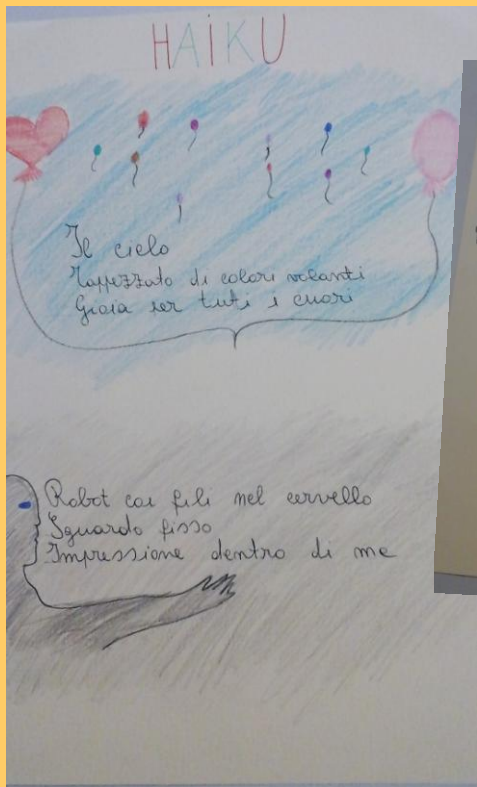 HAIKU
Il cielo
Tappezzato di colori volanti
Gioia per tutti i cuori
Robot coi fili nel cervello
Sguardo fisso
Impressione dentro di me